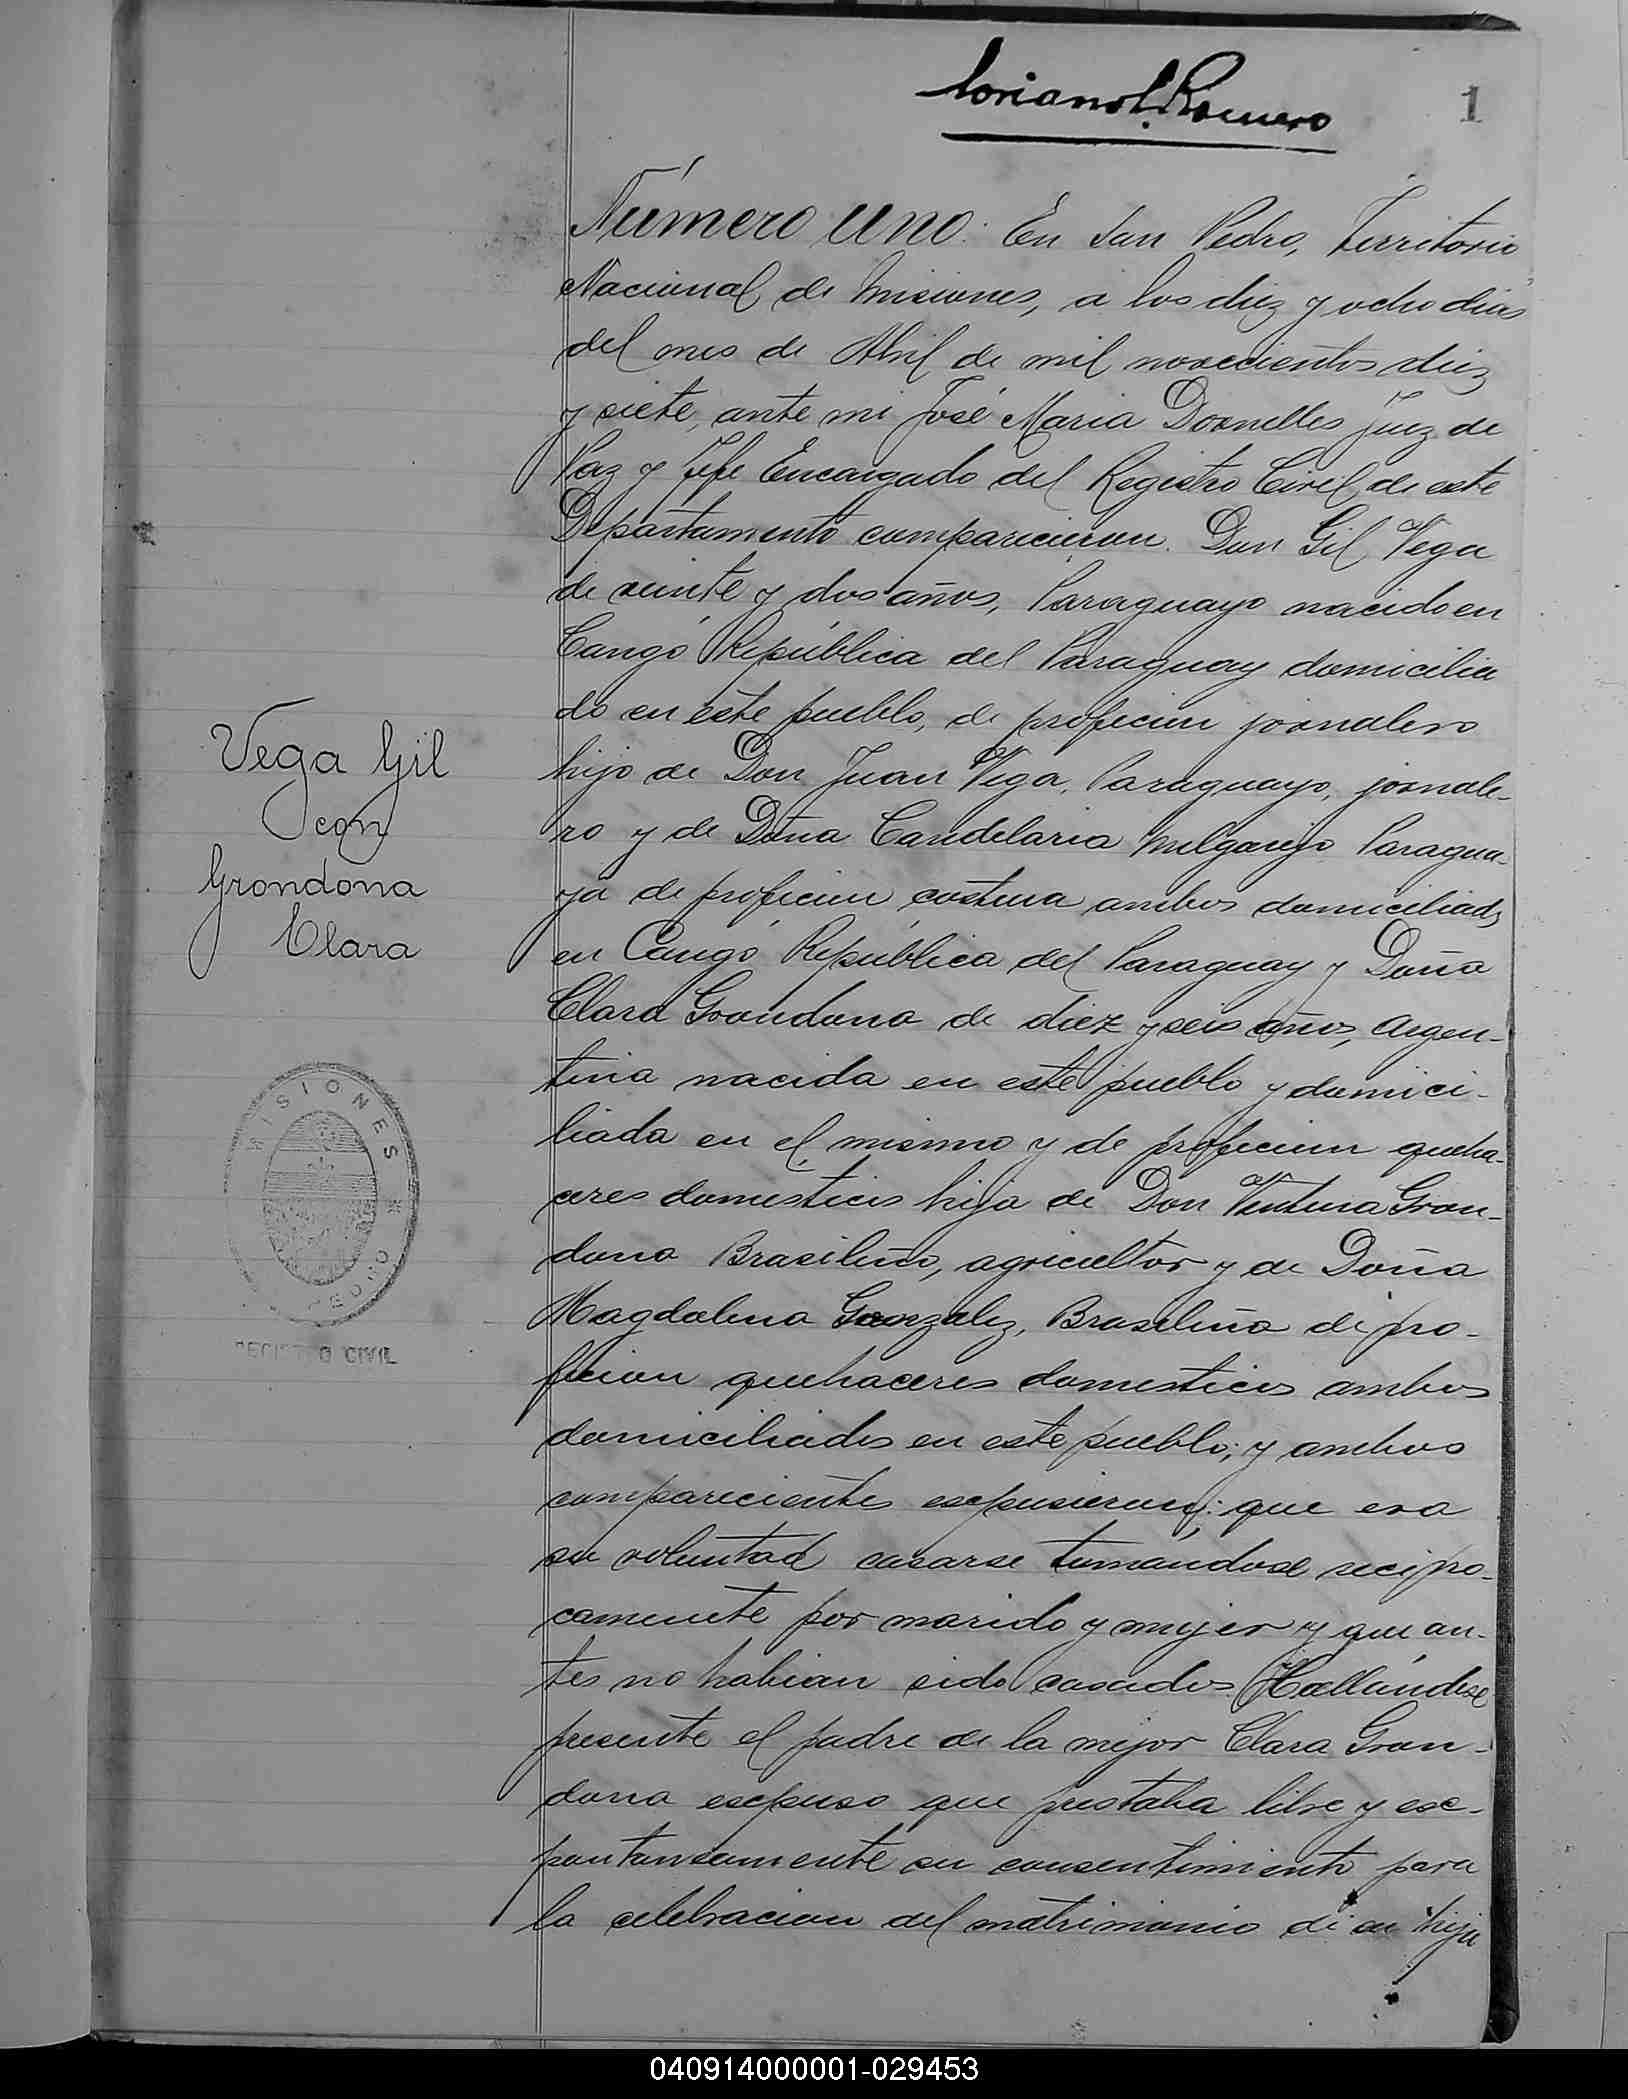 Loriano L. Romero
1
Número uno: En San Pedro, Territorio
Nacional de Misiones, a los diez y ocho dias
del mes de Abril de mil novecientos diez
y siete, ante mi José Maria Dornelles Juez de
Paz y Jefe Encargado del Registro Civil de este
Departamento comparecieron. Don Gil Vega
de veinte y dos años, Paraguayo nacido en
Cangó República del Paraguay domicilia
do en este pueblo, de profecion jornalero
hijo de Don Juan Vega, Paraguayo, jornale-
ro y de Doña Candelaria Melgarejo Paragua-
ya de profecion costura ambos domiciliados
en Cangó República del Paraguay y Doña
Clara Grondona de diez y seis años, Argen-
tina nacida en este pueblo y domici-
liada en el mismo y de profecion queha-
ceres domesticos hija de Don Ventura Gron-
dona Brasileño, agricultor y de Doña
Magdalena Gonzalez, Brasileña de pro-
fecion quehaceres domesticos ambos
domiciliados en este pueblo; y ambos
comparecientes expusieron: que era
su voluntad casarse tomandose recipro-
camente por marido y mujer y que an-
tes no habian sido casados. Hallándose
presente el padre de la mejor Clara Gron-
dona expuso que prestaba libre y es-
pontaneamente su consentimiento para
la celebracion del matrimonio de su hija
Vega Gil
con
Grondona
Clara
MISIONES * PEDRO
REGISTRO CIVIL
040914000001-029453